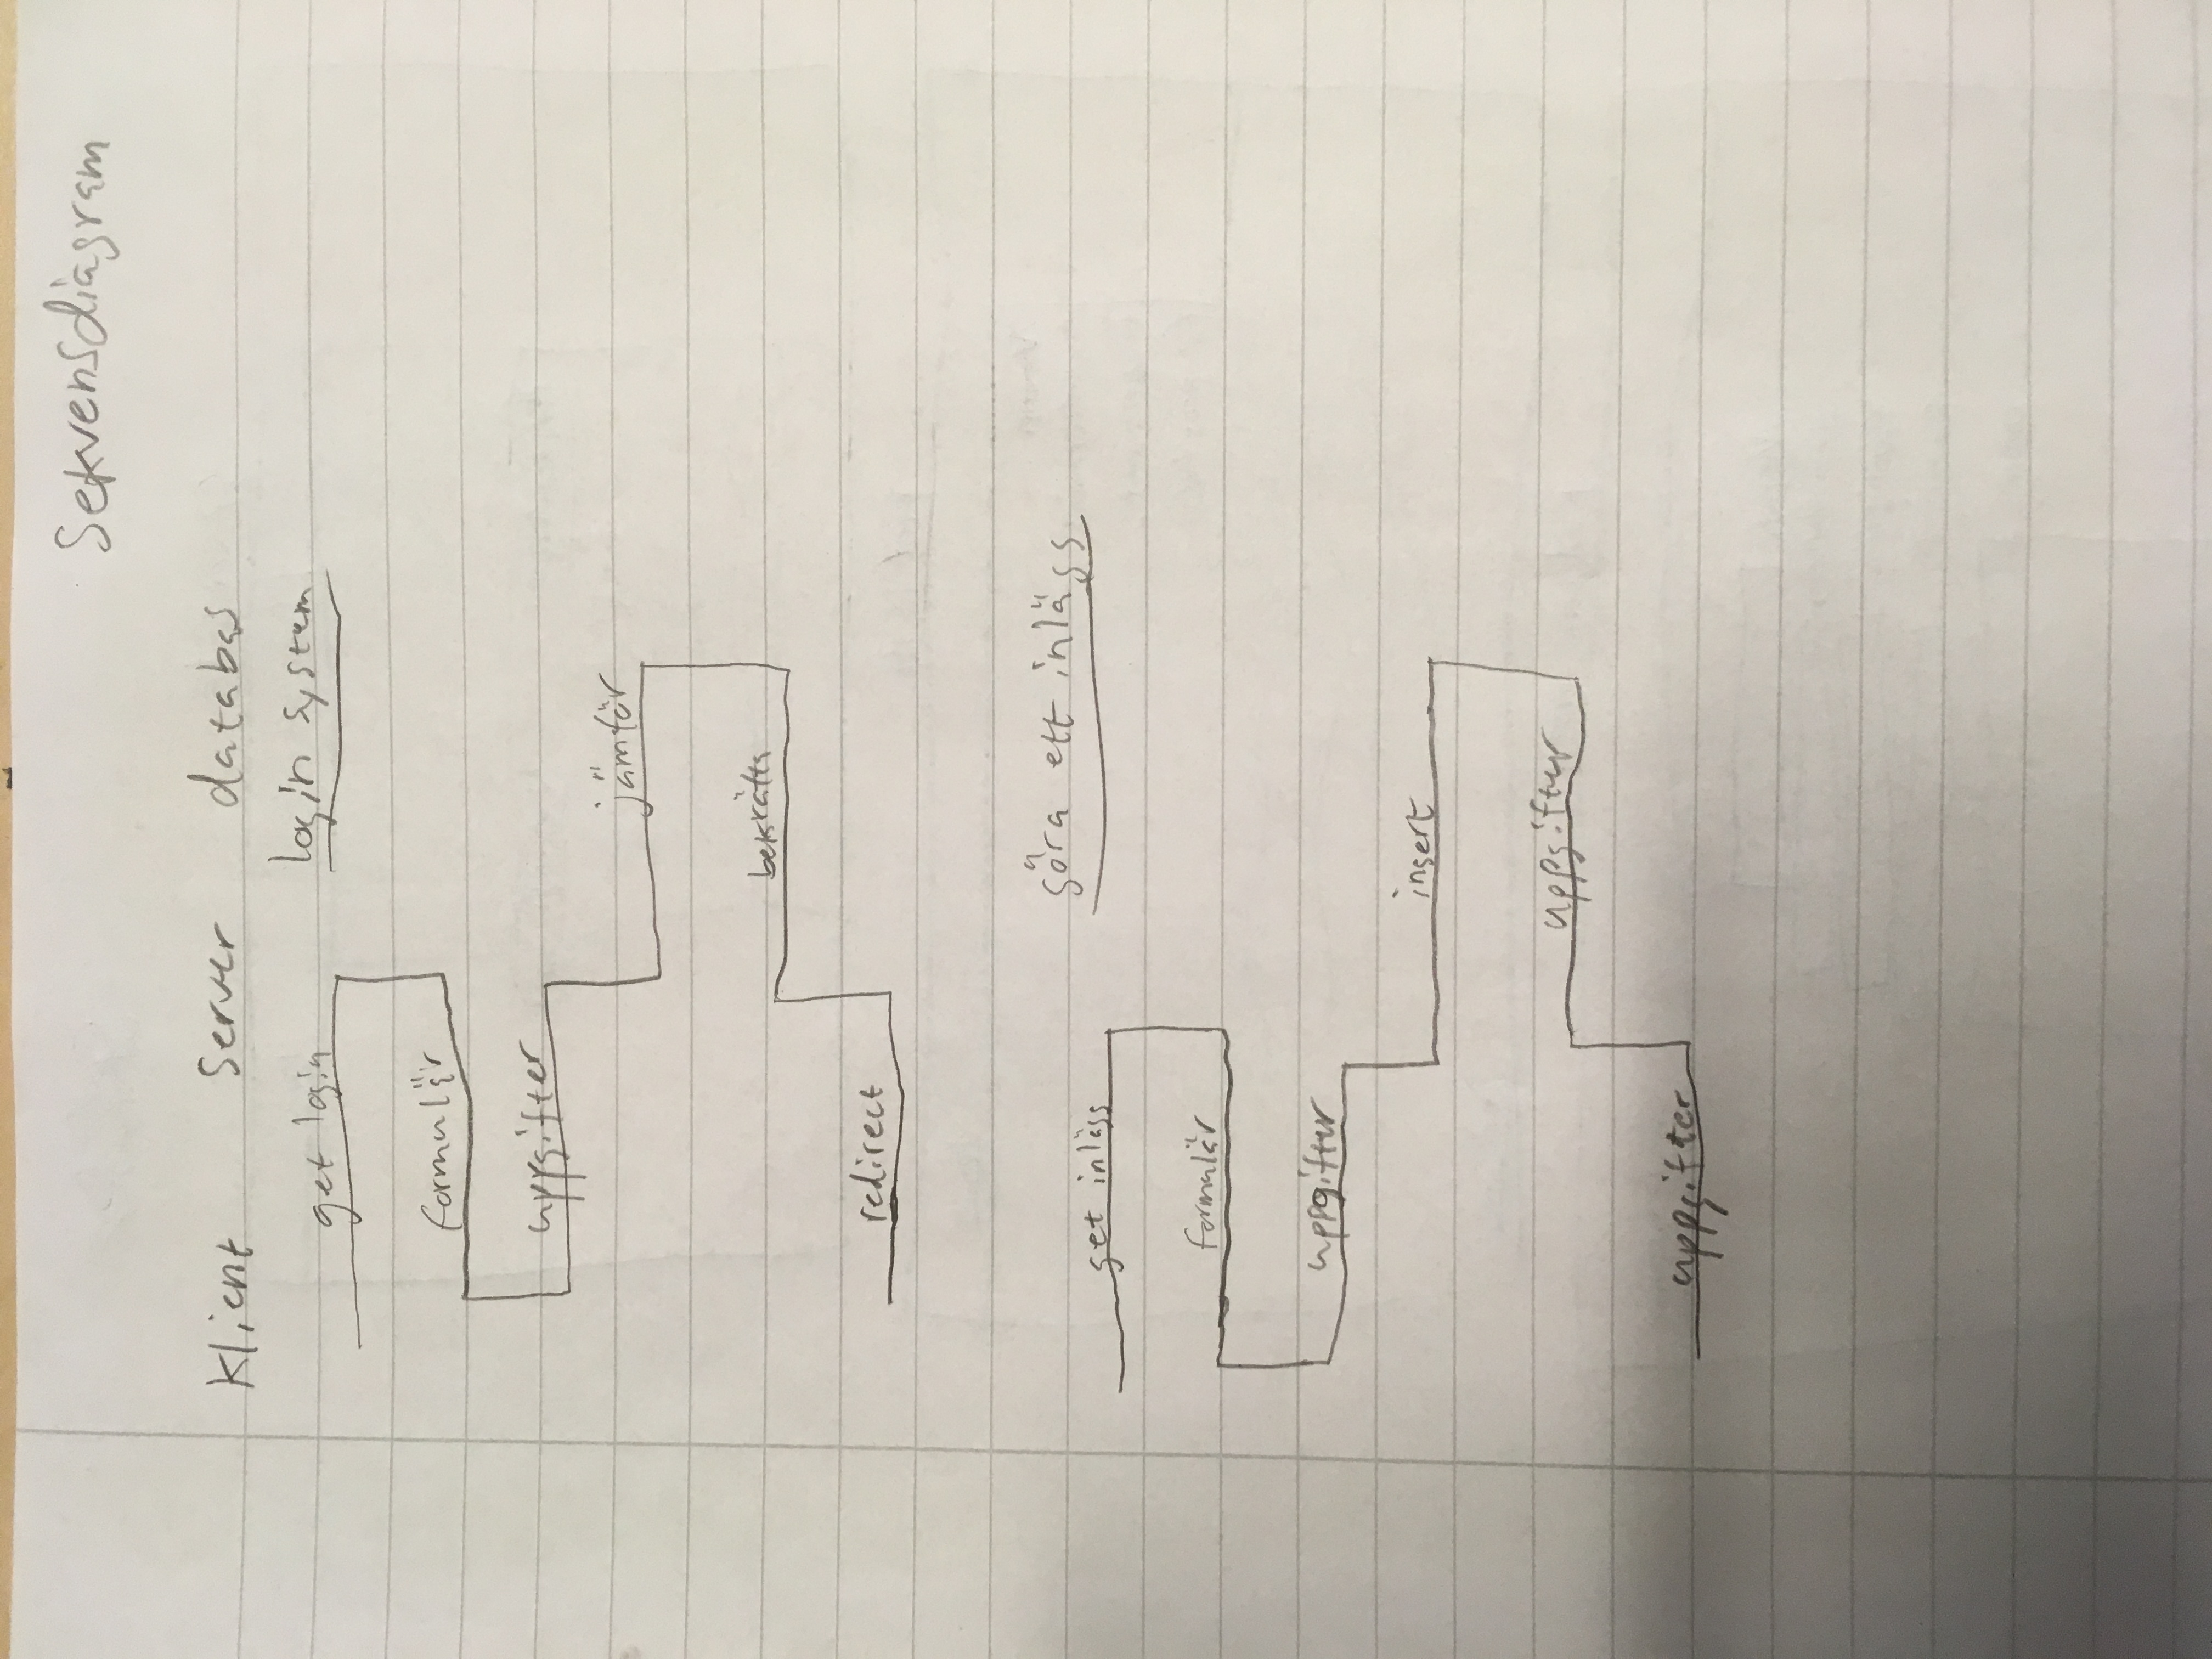 Sekvensdiagram
Klient Server databas
get login login system
formulär
uppgifter
jämför
bekräfta
redirect
göra ett inlägg
get inlägg
formulär
uppgifter
insert
uppgifter
uppgifter